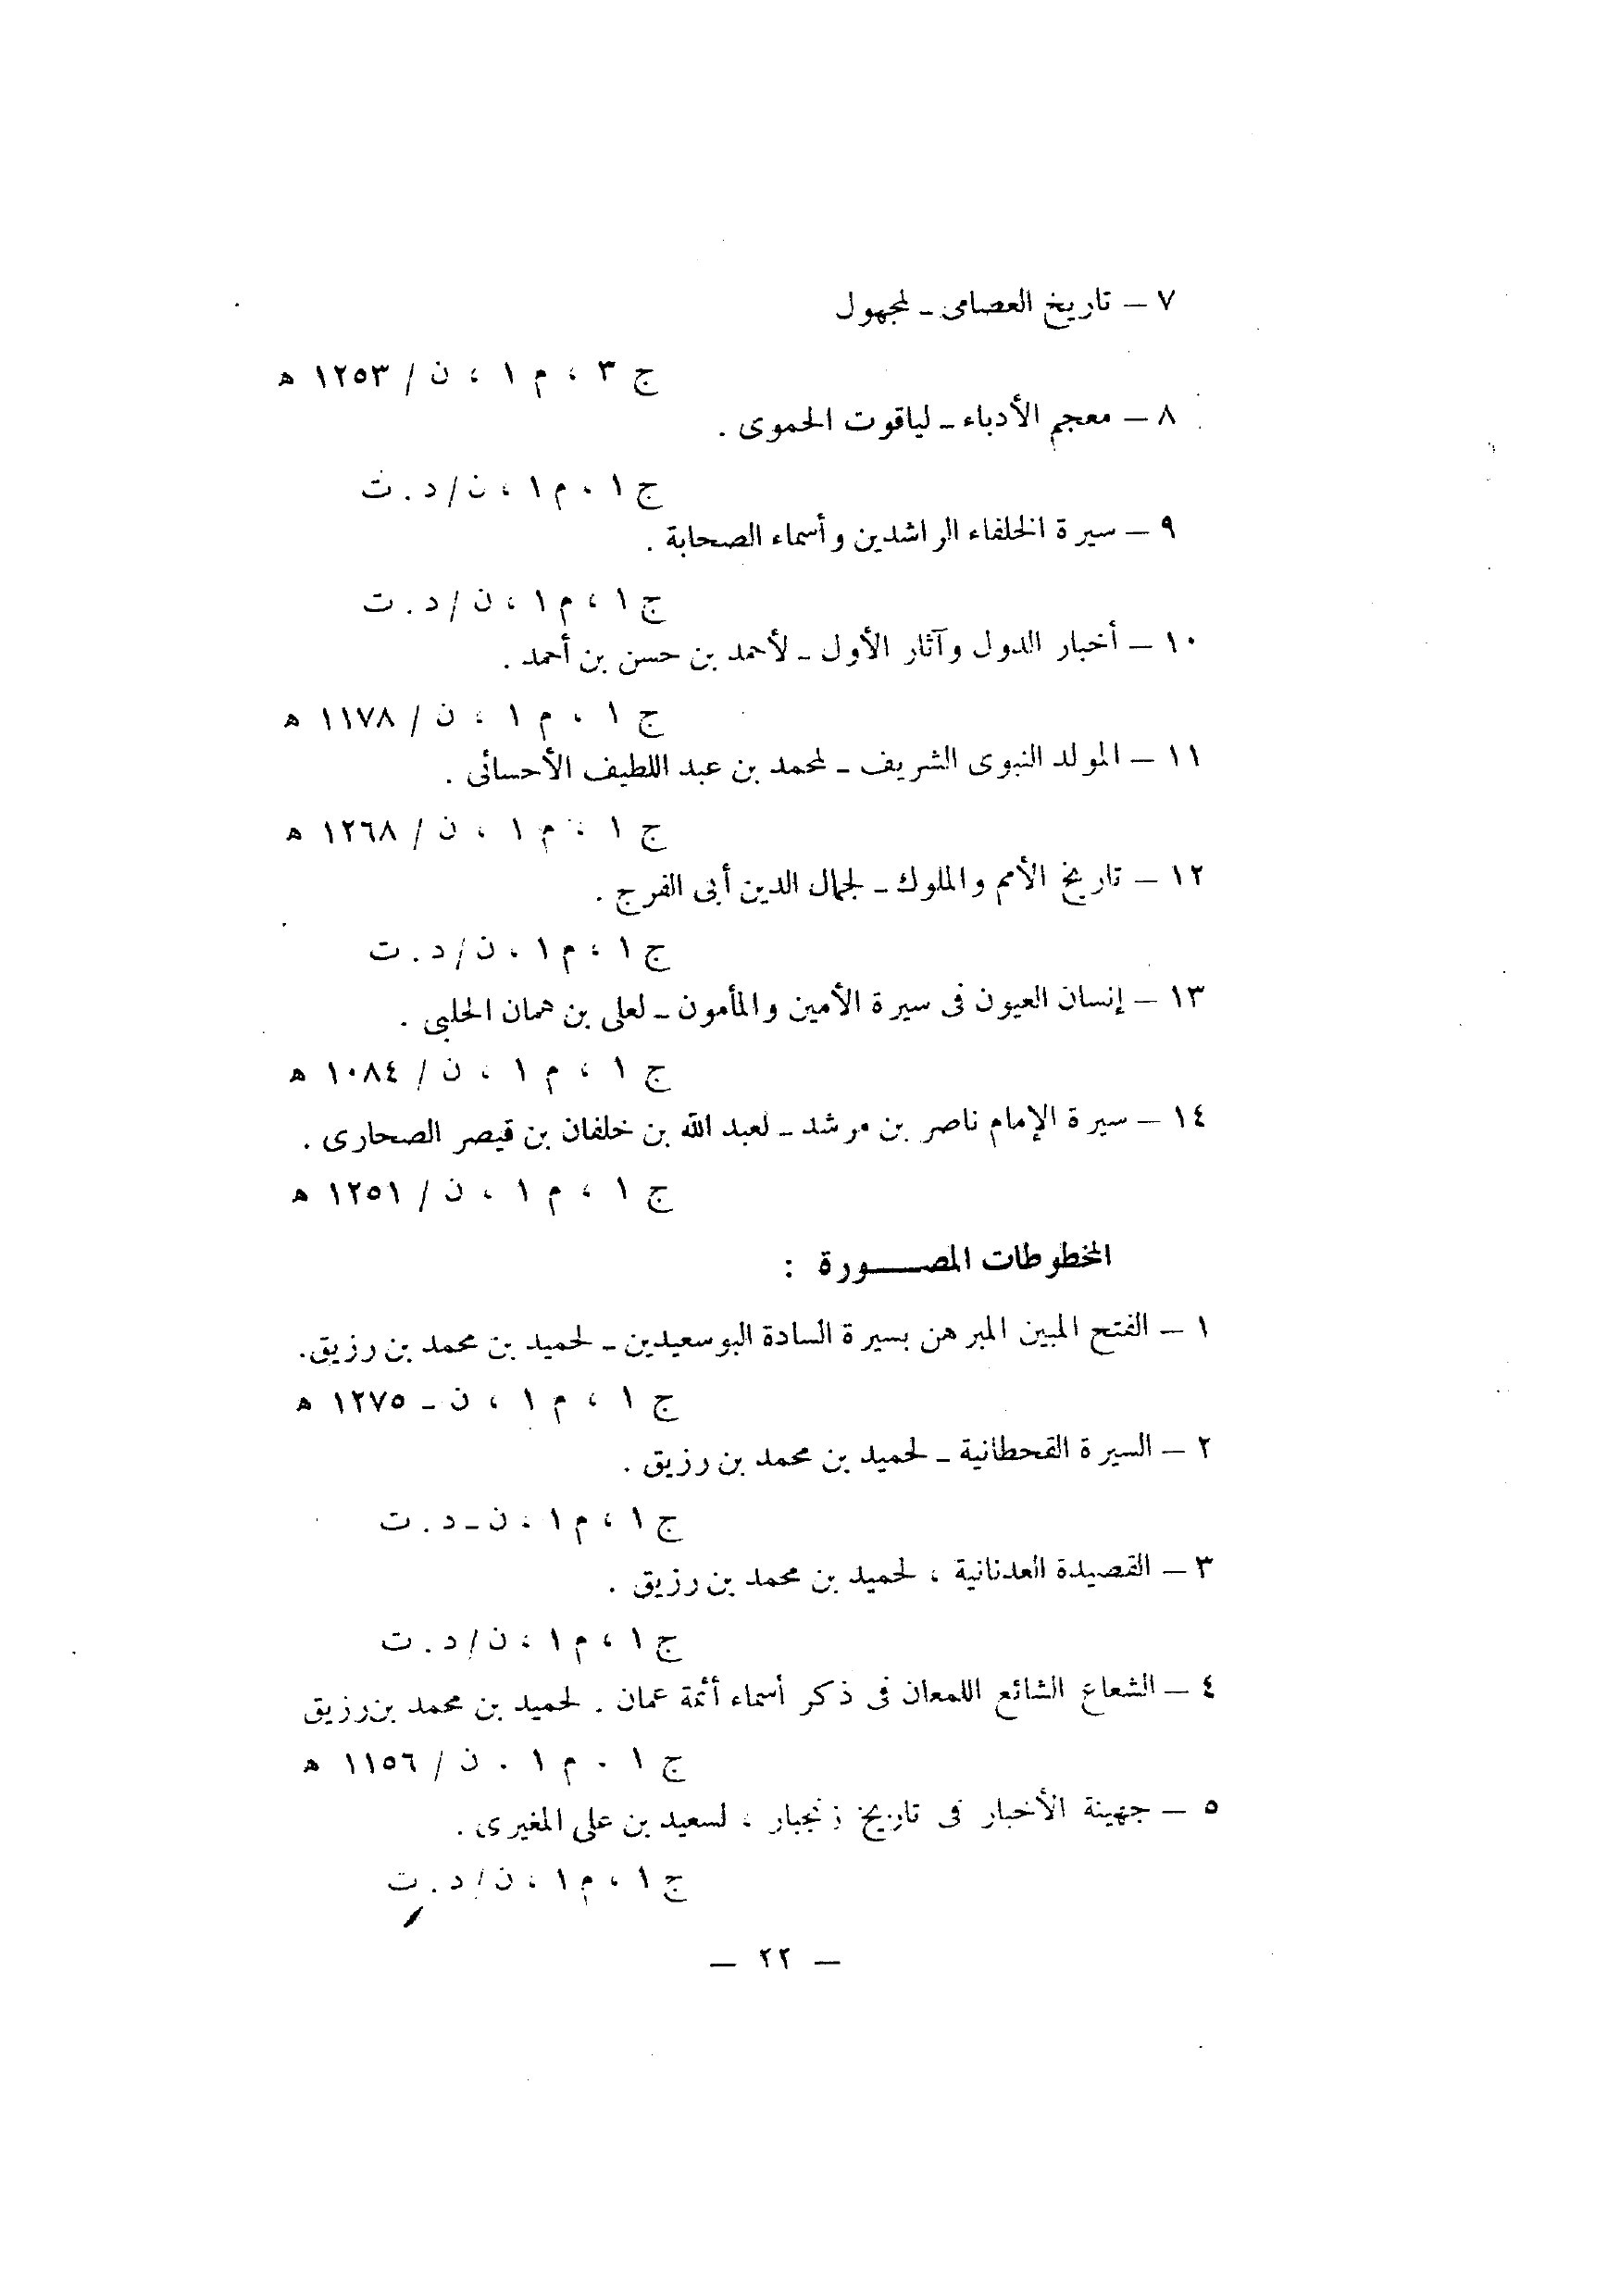 ٧ – تاريخ العصامى – لمجهول
ج ٣ ، م ١ ، ن / ١٢٥٣ ه
٨ – معجم الأدباء – لياقوت الحموى .
ج ١ ، م ١ ، ن/د . ت
٩ – سيرة الخلفاء الراشدين وأسماء الصحابة .
ج ١ ، م ١ ، ن/د . ت
١٠ – أخبار الدول وآثار الأول – لأحمد بن حسن بن أحمد .
ج ١ ، م ١ ، ن / ١١٧٨ ه
١١ – المولد النبوى الشريف – لمحمد بن عبد اللطيف الأحسائى .
ج ١ ، م ١ ، ن / ١٢٦٨ ه
١٢ – تاريخ الأمم والملوك – لجمال الدين أبى الفرج .
ج ١ ، م ١ ، ن/د . ت
١٣ – إنسان العيون فى سيرة الأمين والمأمون – لعلى بن همان الحلبى .
ج ١ ، م ١ ، ن / ١٠٨٤ ه
١٤ – سيرة الإمام ناصر بن مرشد – لعبد الله بن خلفان بن قيصر الصحارى .
ج ١ ، م ١ ، ن / ١٢٥١ ه
المخطوطات المصـــورة :
١ – الفتح المبين المبرهن بسيرة السادة البوسعيدين – لحميد بن محمد بن رزيق.
ج ١ ، م ١ ، ن – ١٢٧٥ ه
٢ – السيرة القحطانية – لحميد بن محمد بن رزيق .
ج ١ ، م ١ ، ن – د . ت
٣ – القصيدة العدنانية ، لحميد بن محمد بن رزيق .
ج ١ ، م ١ ، ن/د . ت
٤ – الشعاع الشائع اللمعان فى ذكر أسماء أئمة عمان . لحميد بن محمد بن رزيق
ج ١ . م ١ . ن / ١١٥٦ ه
٥ – جهينة الأخبار فى تاريخ زنجبار ، لسعيد بن على المغيرى .
ج ١ ، م ١ ، ن/د . ت
– ٢٢ –